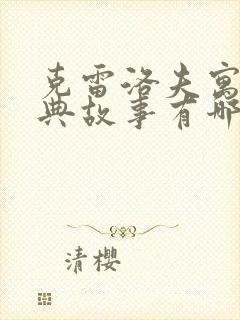 克雷洛夫寓
典故事有哪
清樱